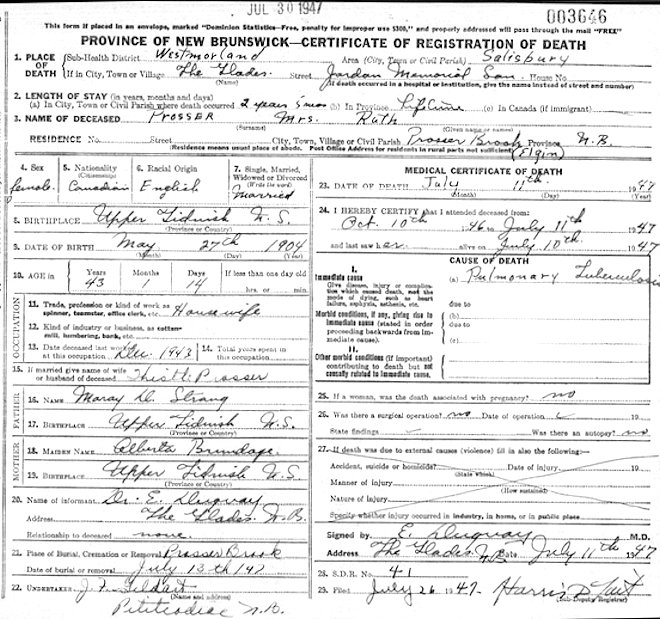 JUL 30 1947
003646
This form if placed in an envelope, marked "Dominion Statistics—Free, penalty for improper use $300," and properly addressed will pass through the mail "FREE"
PROVINCE OF NEW BRUNSWICK—CERTIFICATE OF REGISTRATION OF DEATH
1. PLACE OF DEATH Sub-Health District Westmorland Area (City, Town or Civil Parish) Salisbury
If in City, Town or Village The Glades. Street Jordan Memorial San. House No.
(Name) (If death occurred in a hospital or institution, give the name instead of street and number)
2. LENGTH OF STAY (in years, months and days)
(a) In City, Town or Civil Parish where death occurred 2 years 5 mos (b) In Province Lifetime (c) In Canada (if immigrant)
3. NAME OF DECEASED Prosser Mrs. Ruth
(Surname) (Given name or names)
RESIDENCE No. Street City, Town, Village or Civil Parish Prosser Brook Province N.B.
(Residence means usual place of abode. Post Office Address for residents in rural parts not sufficient) (Elgin)
4. Sex female
5. Nationality (Citizenship) Canadian
6. Racial Origin English
7. Single, Married, Widowed or Divorced (Write the word) Married
8. BIRTHPLACE Upper Tidnish N.S.
(Province or Country)
9. DATE OF BIRTH May 27th 1904
(Month) (Day) (Year)
10. AGE in Years 43 Months 1 Days 14 If less than one day old hrs. or min.
OCCUPATION
11. Trade, profession or kind of work as spinner, teamster, office clerk, etc. Housewife
12. Kind of industry or business, as cotton-mill, lumbering, bank, etc.
13. Date deceased last worked at this occupation Dec. 1943 14. Total years spent in this occupation
15. If married give name of wife or husband of deceased Thistle Prosser
FATHER
16. NAME D. Strang
17. BIRTHPLACE Upper Tidnish N.S.
(Province or Country)
MOTHER
18. MAIDEN NAME Alberta Brundage
19. BIRTHPLACE Upper Tidnish N.S.
(Province or Country)
20. Name of informant Dr. E. Duguay
Address The Glades. N.B.
Relationship to deceased none
21. Place of Burial, Cremation or Removal Prosser Brook
Date of burial or removal July 13th 1947
22. UNDERTAKER J. F. Gildart
(Name and address)
Petitcodiac N.B.
MEDICAL CERTIFICATE OF DEATH
23. DATE OF DEATH July 11th 1947
(Month) (Day) (Year)
24. I HEREBY CERTIFY that I attended deceased from:
Oct. 10th 1946 to July 11th 1947
and last saw her alive on July 10th 1947
CAUSE OF DEATH
I.
Immediate cause (a) Pulmonary Tuberculosis
Give disease, injury or complication which caused death, not the mode of dying, such as heart failure, asphyxia, asthenia, etc. due to
Morbid conditions, if any, giving rise to immediate cause (stated in order proceeding backwards from immediate cause). (b) due to (c)
II.
Other morbid conditions (if important) contributing to death but not causally related to immediate cause.
25. If a woman, was the death associated with pregnancy? no
26. Was there a surgical operation? no Date of operation 19
State findings Was there an autopsy? no
27. If death was due to external causes (violence) fill in also the following:—
Accident, suicide or homicide? Date of injury 19
(State which)
Manner of injury
(How sustained)
Nature of injury
Specify whether injury occurred in industry, in home, or in public place
Signed by E. Duguay M.D.
Address The Glades N.B. Date July 11th 1947
28. S.D.R. No. 41
29. Filed July 26 1947. Harris D Tait
(Sub-Deputy Registrar)